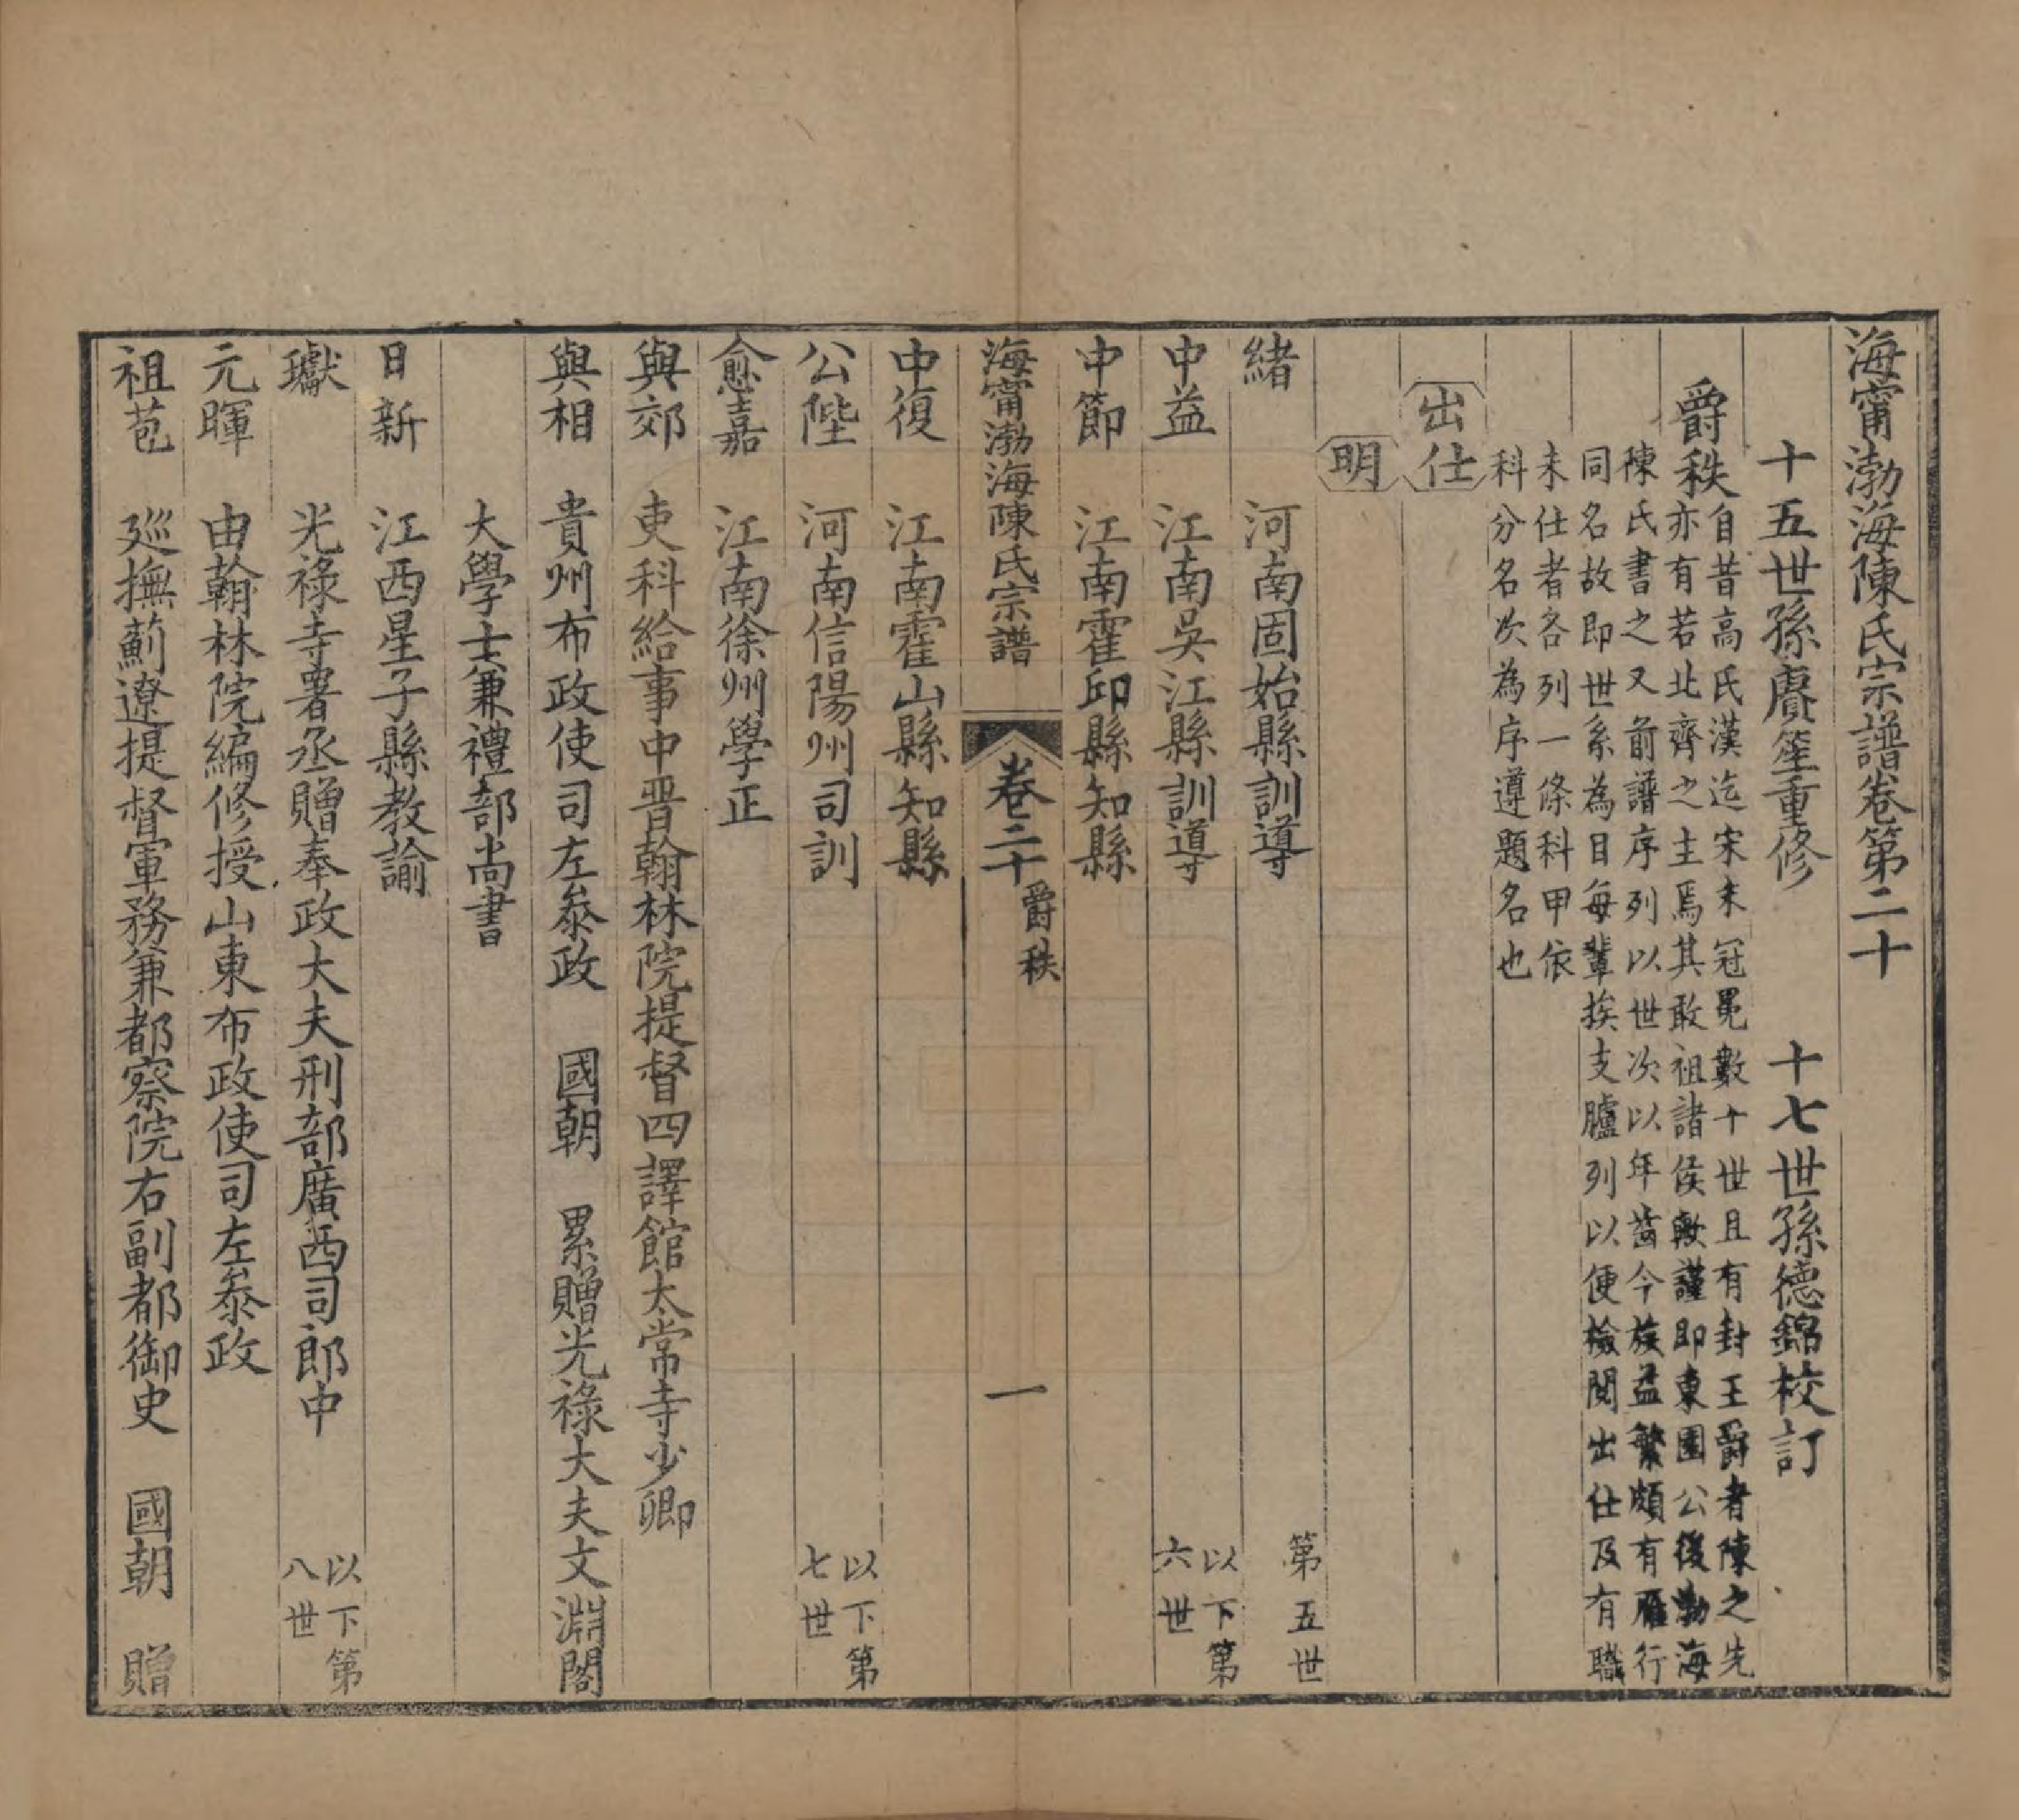 海甯渤海陳氏宗譜卷第二十
十五世孫賡笙重修
十七世孫德錦校訂
爵秩
自昔高氏漢迄宋末冠冕數十世且有封王爵者陳之先
亦有若北齊之主焉其敢祖諸侯歟謹即東園公後渤海
陳氏書之又前譜序列以世次以年齒今族益繁頗有雁行
同名故即世系為目每輩挨支臚列以便檢閱出仕及有職
未仕者各列一條科甲依
科分名次為序遵題名也
出仕
明
緒 河南固始縣訓導 第五世
中益 江南吳江縣訓導 以下第六世
中節 江南霍邱縣知縣
海甯渤海陳氏宗譜 卷二十 爵秩 一
中復 江南霍山縣知縣
公陛 河南信陽州司訓 以下第七世
愈嘉 江南徐州學正
與郊 吏科給事中晋翰林院提督四譯館太常寺少卿
與相 貴州布政使司左叅政 國朝 累贈光祿大夫文淵閣
大學士兼禮部尚書
日新 江西星子縣教諭
瓛 光祿寺署丞贈奉政大夫刑部廣西司郎中 以下第八世
元暉 由翰林院編修授山東布政使司左叅政
祖苞 廵撫薊遼提督軍務兼都察院右副都御史 國朝 贈